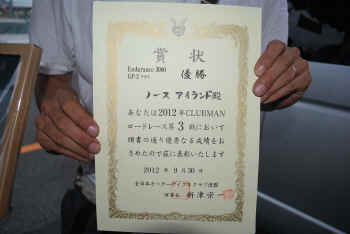 賞状
Endurance 1000
GP-2 クラス
優勝
ノース アイランド殿
あなたは2012年CLUBMAN
ロードレース第3戦において
頭書の通り優秀なる成績をお
さめたので茲に表彰いたします
2012年9月30日
新津栄一